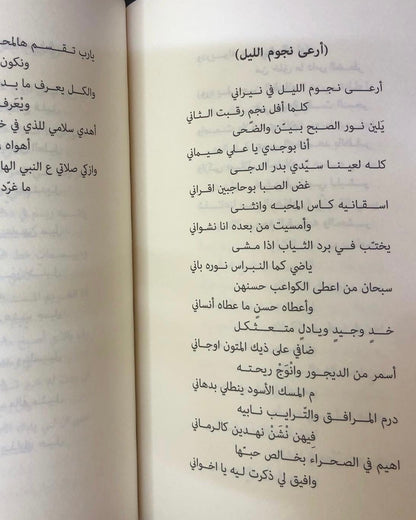 (أرعى نجوم الليل)
أرعـى نجـوم الليل في نيراني
كلما أفل نجم رقبت الثاني
يَلين نور الصبح بيّـن والضّحى
أنا بوجدي يا علي هيماني
كله لعينا سيّدي بدر الدجـى
غض الصبا بوحاجبين اقراني
اسقانيه كاس المحبه وانثنى
وأمسيت من بعده انا نشواني
يختب في برد الثياب اذا مشى
ياضي كما النبراس نوره باني
سبحان من اعطى الكواعب حسنهن
وأعطاه حسنٍ ما عطاه أنساني
خدٍ وجيدٍ ويادلٍ متعثكل
ضافي على ذيك المتون اوجاني
أسمر من الديجور وانْوَجْ ريحته
م المسك الأسود ينطلي بدهاني
درم المرافق والتّرايب نابيه
فيهن نْشَنْ نهدين كالرماني
اهيم في الصحراء بخالص حبّها
وافيق لي ذكرت ليه يا اخواني
يارب تقسم هالمح
ونكون
والكل يعرف ما بد
ويْعَرف
أهدي سلامي للذي في خ
أهواه
وازكي صلاتي ع النبي الها
ما غرّد